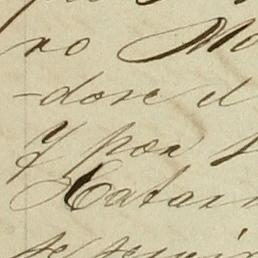 ro Mo
-dose el
y por
Catar